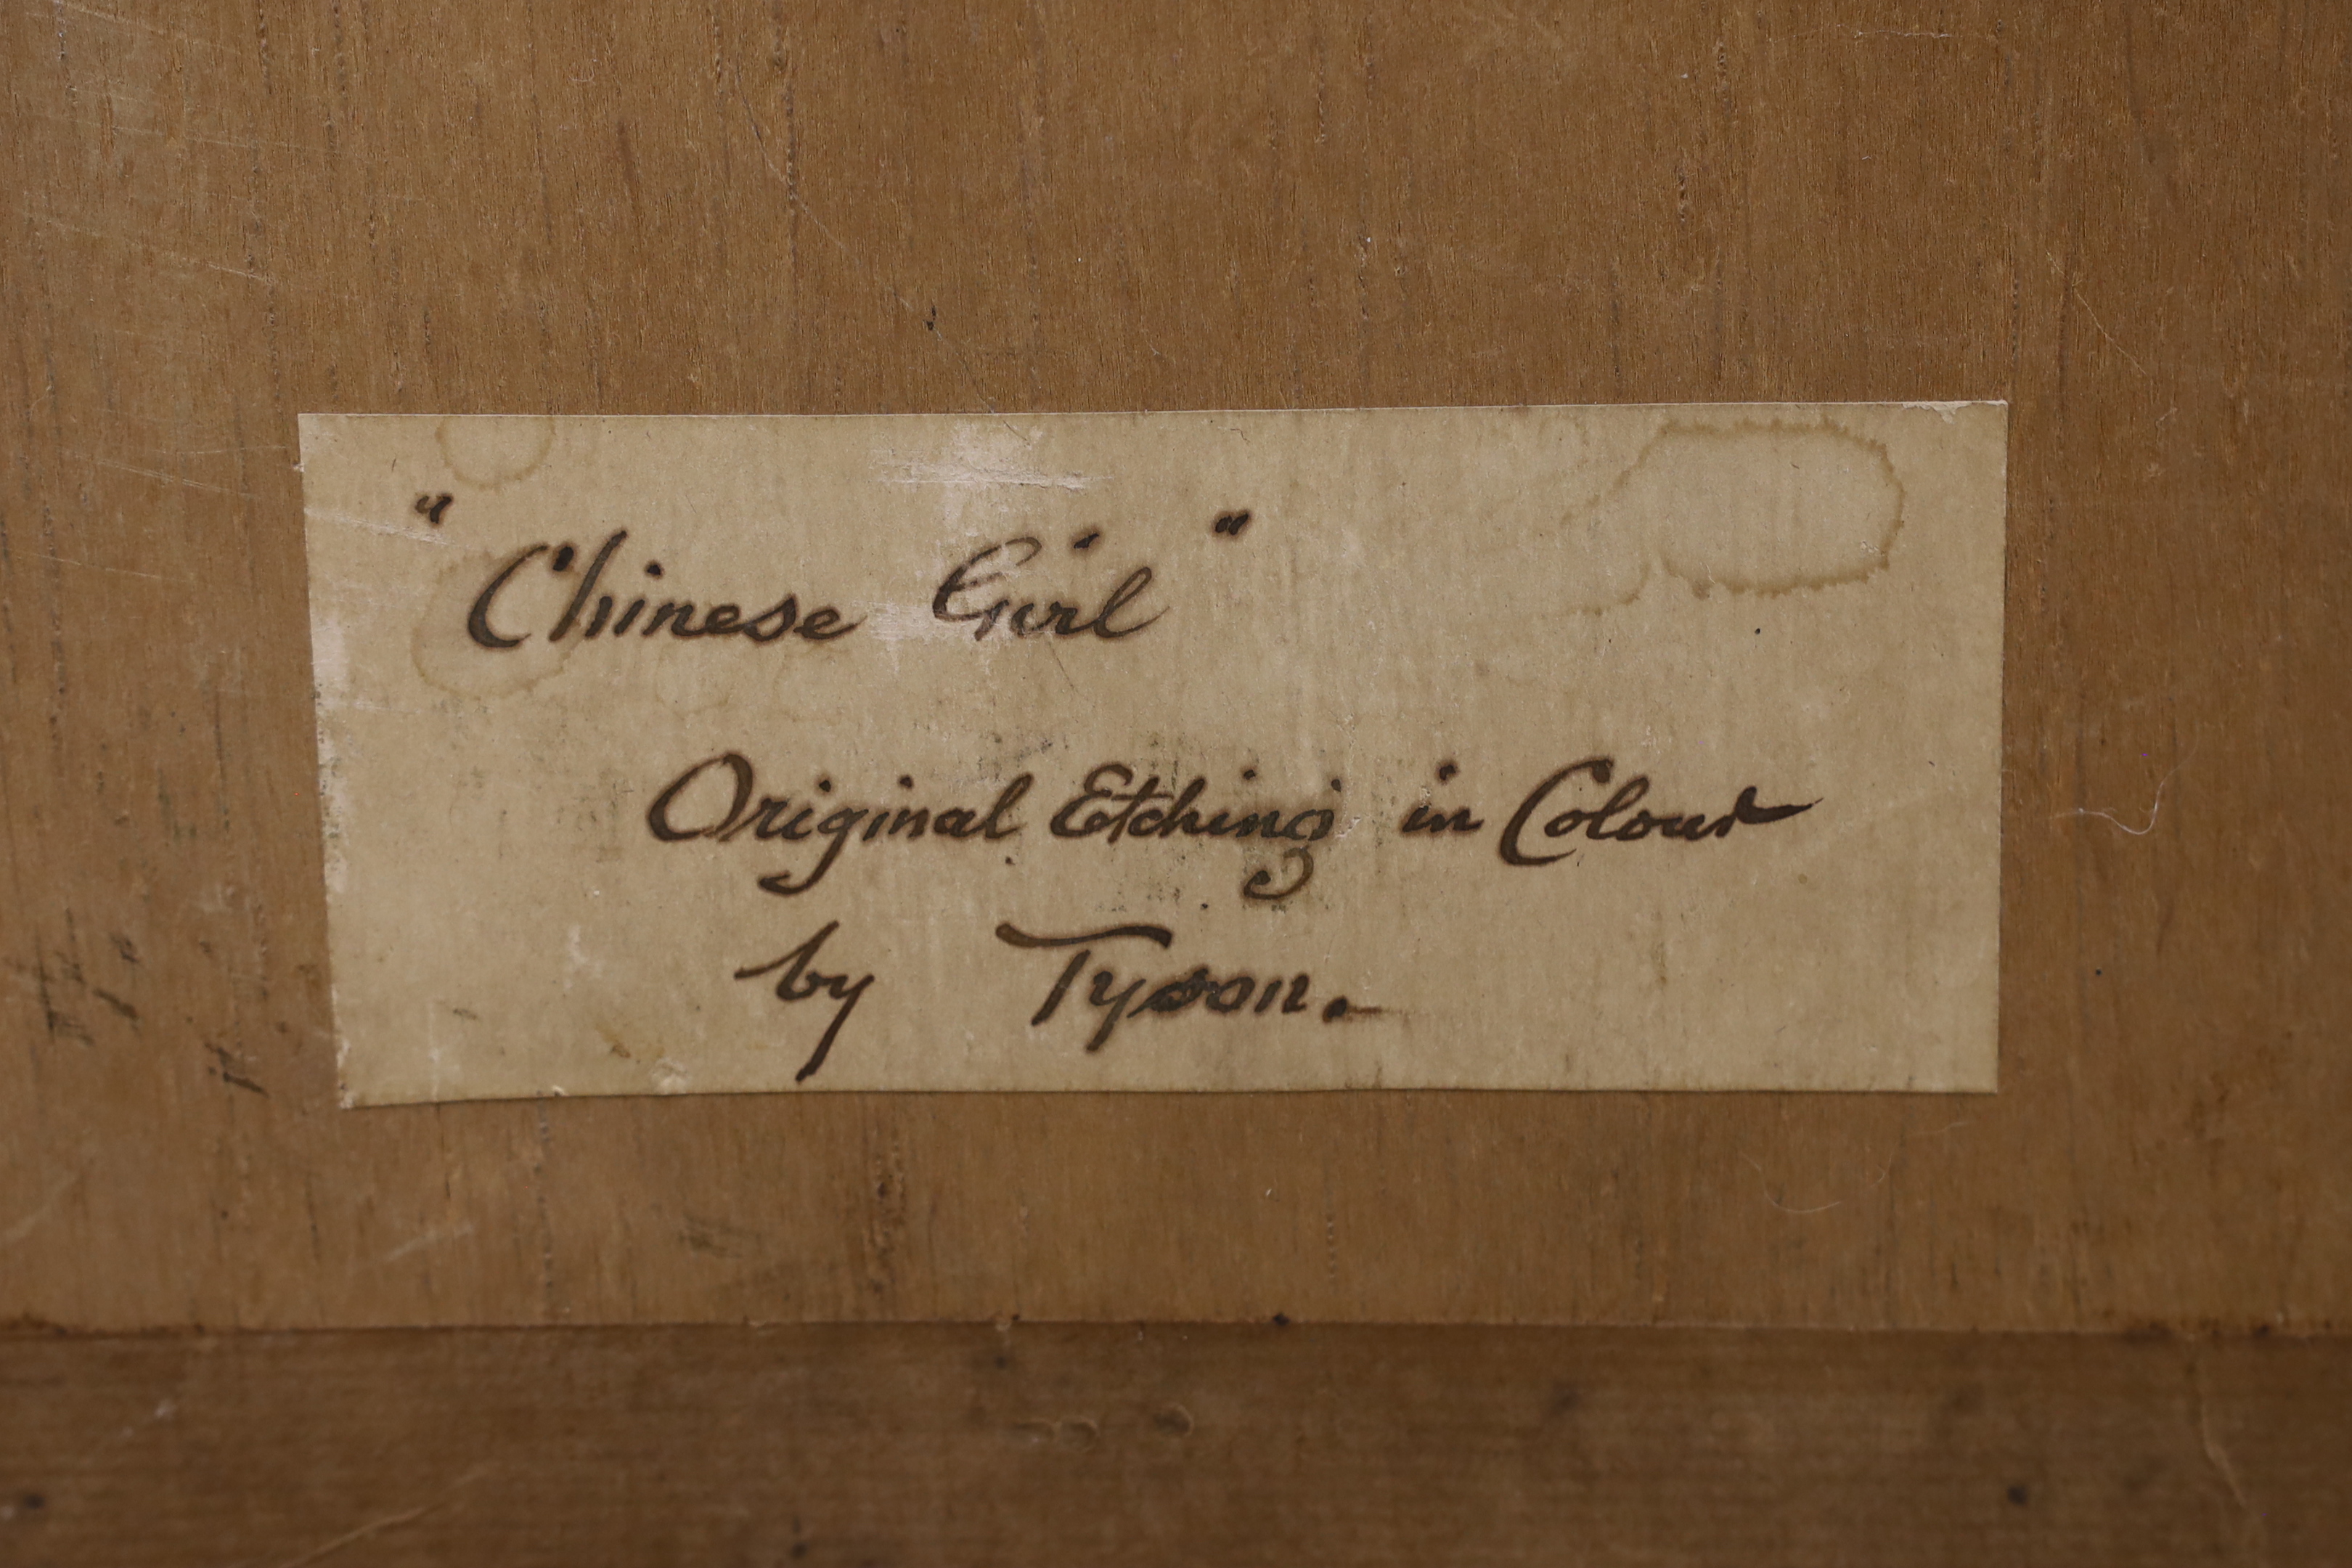 "Chinese Girl"
Original Etching in Colour
by Tyson.